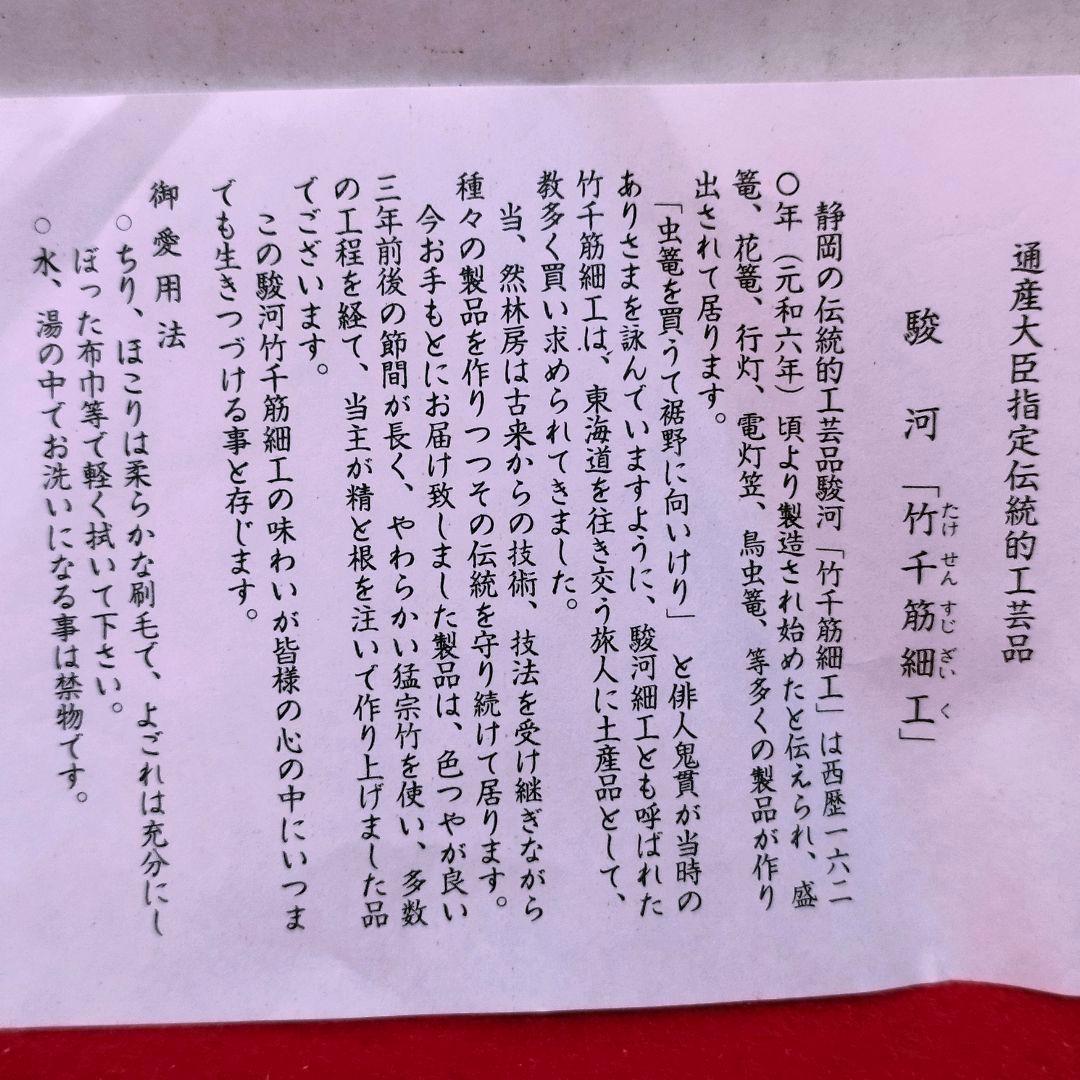 通産大臣指定伝統的工芸品
駿河「竹千筋細工」
たけせんすじざいく
静岡の伝統的工芸品駿河「竹千筋細工」は西歴一六二
〇年（元和六年）頃より製造され始めたと伝えられ、盛
篭、花篭、行灯、電灯笠、鳥虫篭、等多くの製品が作り
出されて居ります。
「虫篭を買うて裾野に向いけり」と俳人鬼貫が当時の
ありさまを詠んでいますように、駿河細工とも呼ばれた
竹千筋細工は、東海道を往き交う旅人に土産品として、
教多く買い求められてきました。
当、然林房は古来からの技術、技法を受け継ぎながら
種々の製品を作りつつその伝統を守り続けて居ります。
今お手もとにお届け致しました製品は、色つやが良い
三年前後の節間が長く、やわらかい猛宗竹を使い、多数
の工程を経て、当主が精と根を注いで作り上げました品
でございます。
この駿河竹千筋細工の味わいが皆様の心の中にいつま
でも生きつづける事と存じます。
御愛用法
○ちり、ほこりは柔らかな刷毛で、よごれは充分にし
ぼった布巾等で軽く拭いて下さい。
○水、湯の中でお洗いになる事は禁物です。